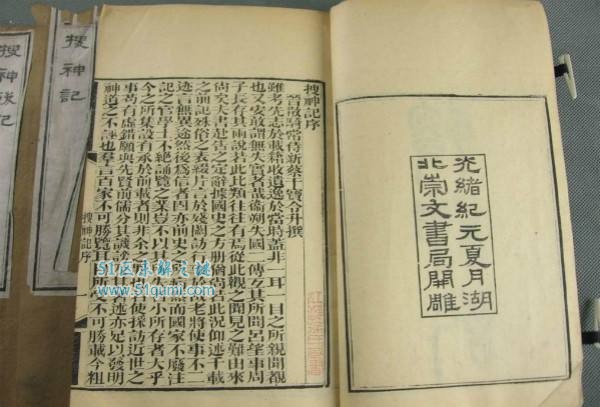 搜神記
搜神後記
搜神記序
晉散騎常侍新蔡干寶令升撰
雖考先志於載籍收遺逸於當時蓋非一耳一目之所親聞覩
也又安敢謂無失實者哉衞朔失國二傳互其所聞呂望事周
子長存其兩說若此比類往往有焉從此觀之聞見之難由來
尚矣夫書赴告之定辭據國史之方册猶尚若此況仰述千載
之前記殊俗之表綴片言於殘闕訪行事於故老將使事不二
迹言無異途然後爲信者固亦前史之所病然而國家不廢注
記之官學士不絕誦覽之業豈不以其所失者小所存者大乎
今之所集設有承於前載者則非余之罪也若使採訪近世之
事苟有虛錯願與先賢前儒分其譏謗及其著述亦足以發明
神道之不誣也羣言百家不可勝覽耳目所受不可勝載今粗
搜神記序
一
光緒紀元夏月湖
北崇文書局開雕
www.51qumi.com